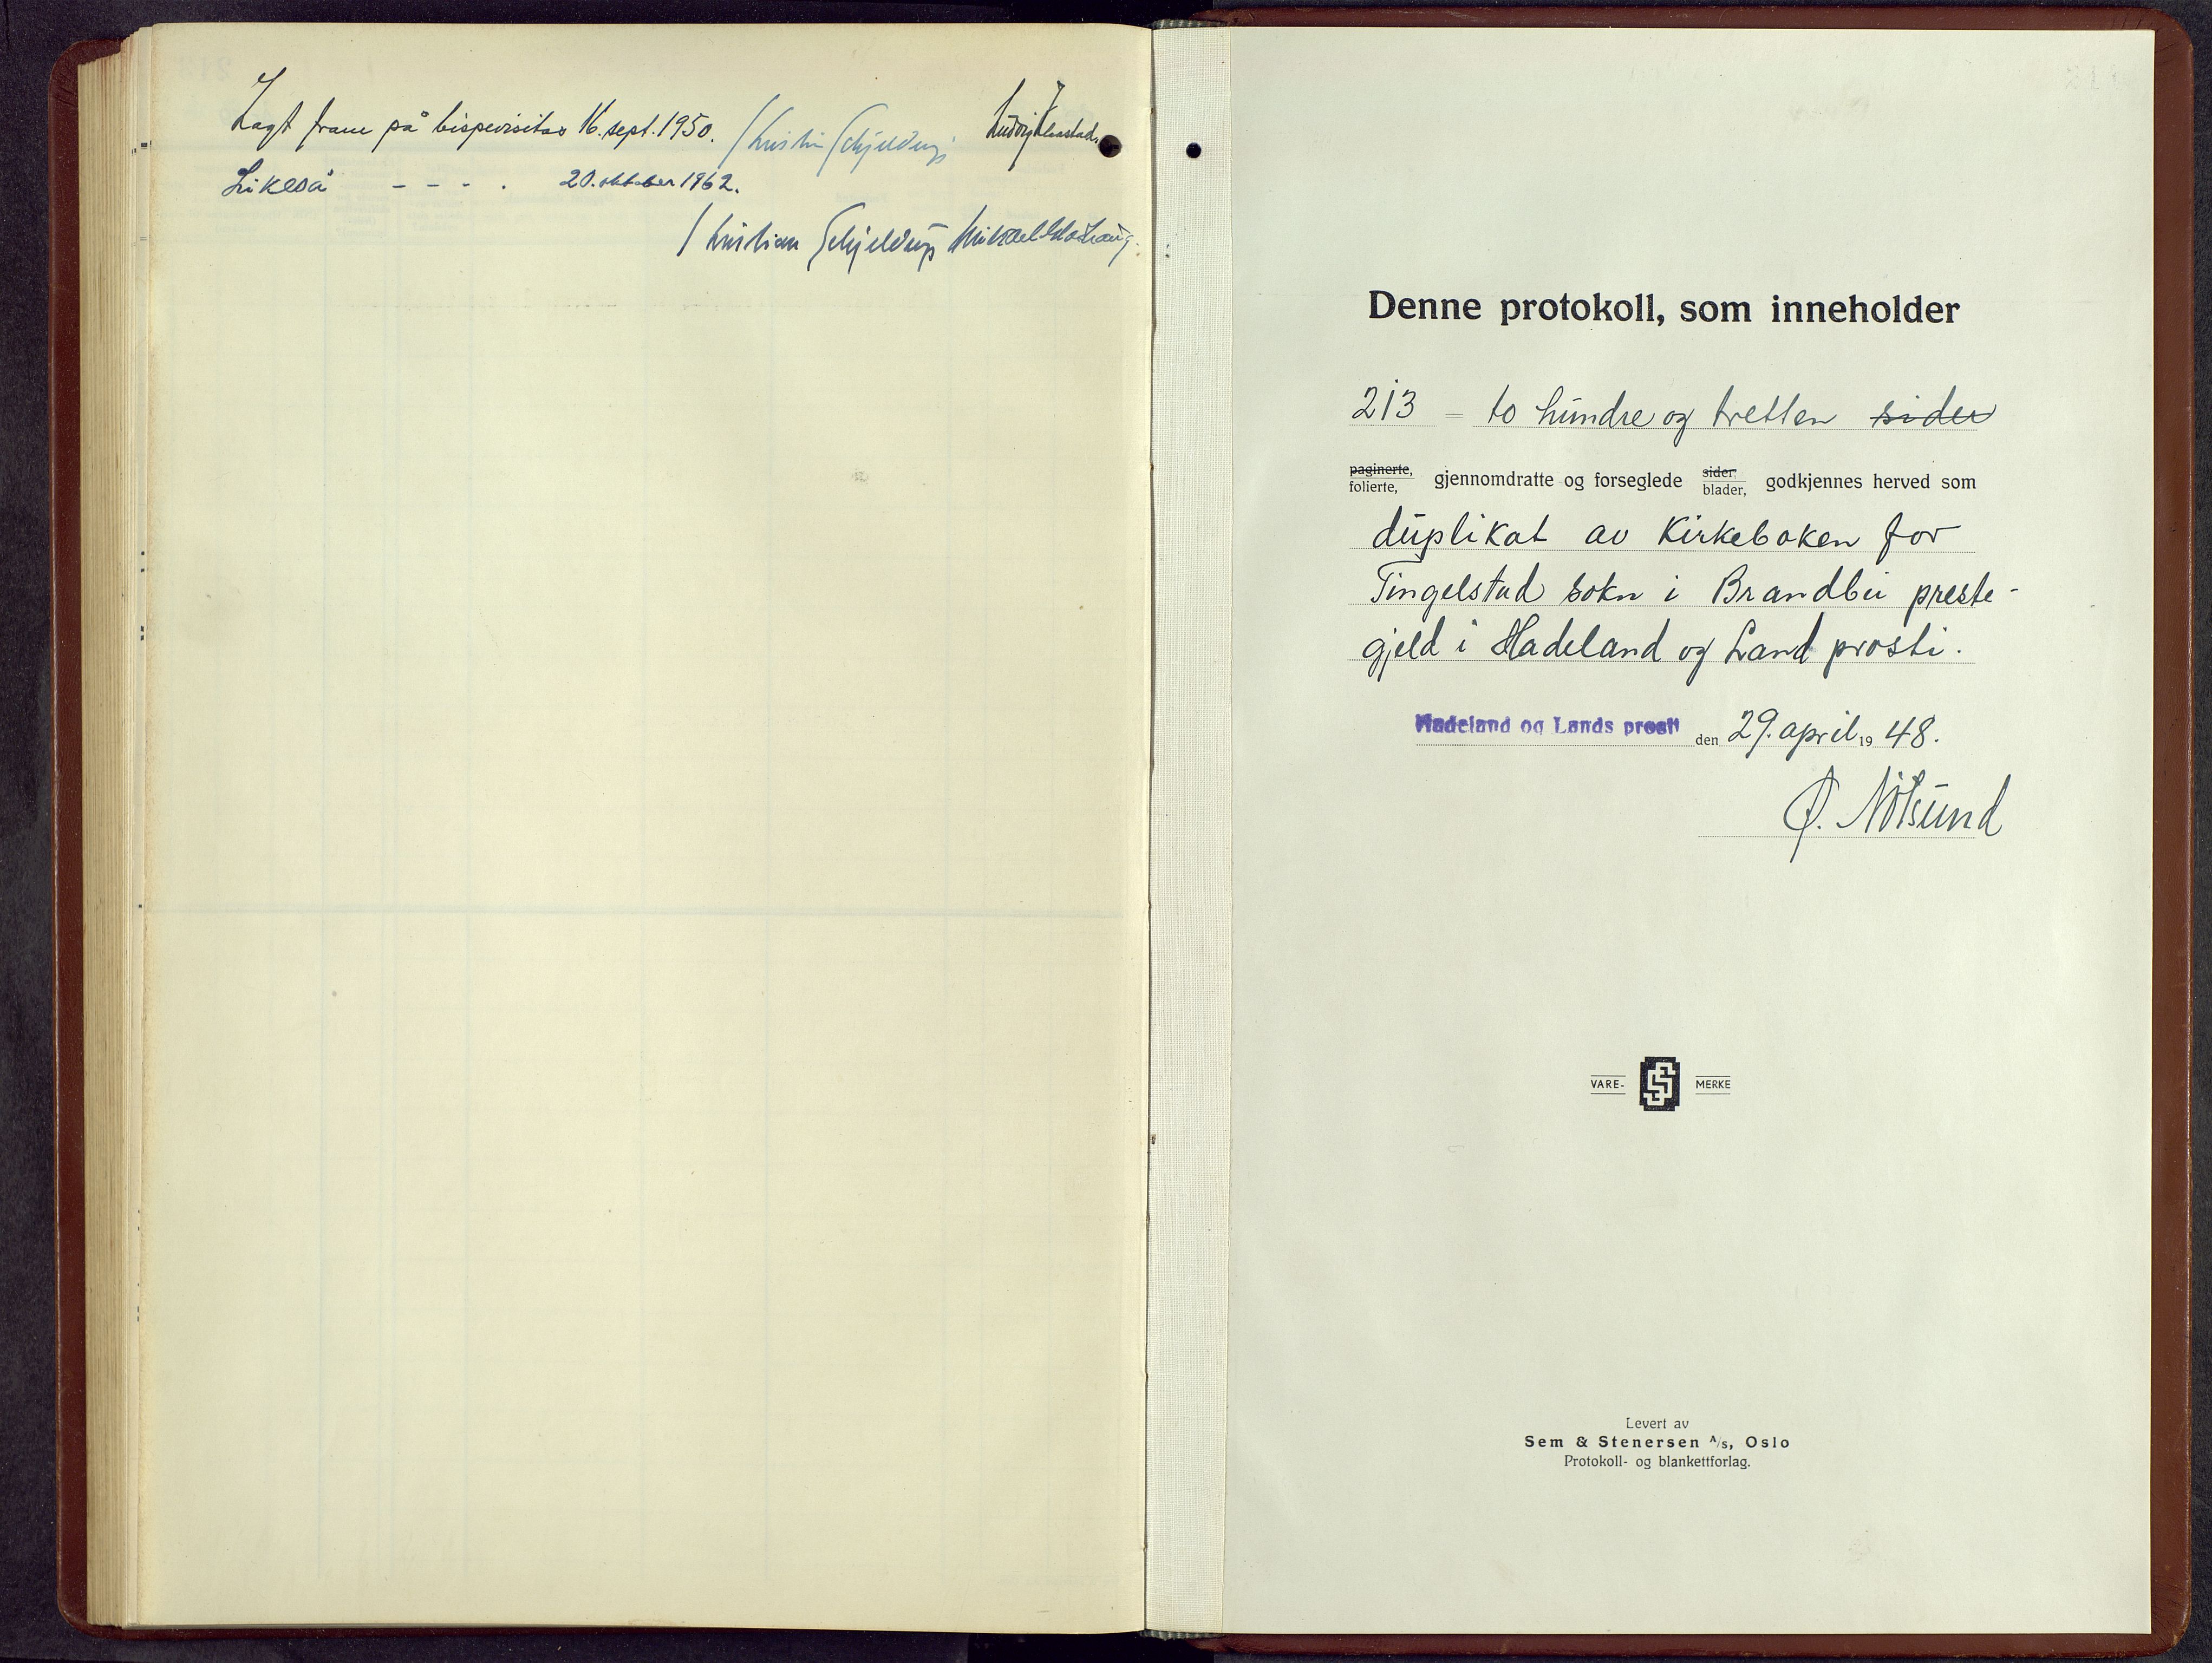 Lagt fram på bispevisitas 16. sept. 1950. Kristian Schjelderup Ludvig
Likeså - - - . 20. oktober 1962.
Kristian Schjelderup Mikael
Denne protokoll, som inneholder
213 = to hundre og tretten sider
paginerte, folierte, gjennomdratte og forseglede sider, blader, godkjennes herved som
duplikat av Kirkeboken for
Tingelstad sokn i Brandbu preste-
gjeld i Hadeland og Land prosti.
Hadeland og Lands prosti den 29. april 1948.
Ø. Nötsund
VARE- SS MERKE
Levert av
Sem & Stenersen A/S, Oslo
Protokoll- og blankettforlag.